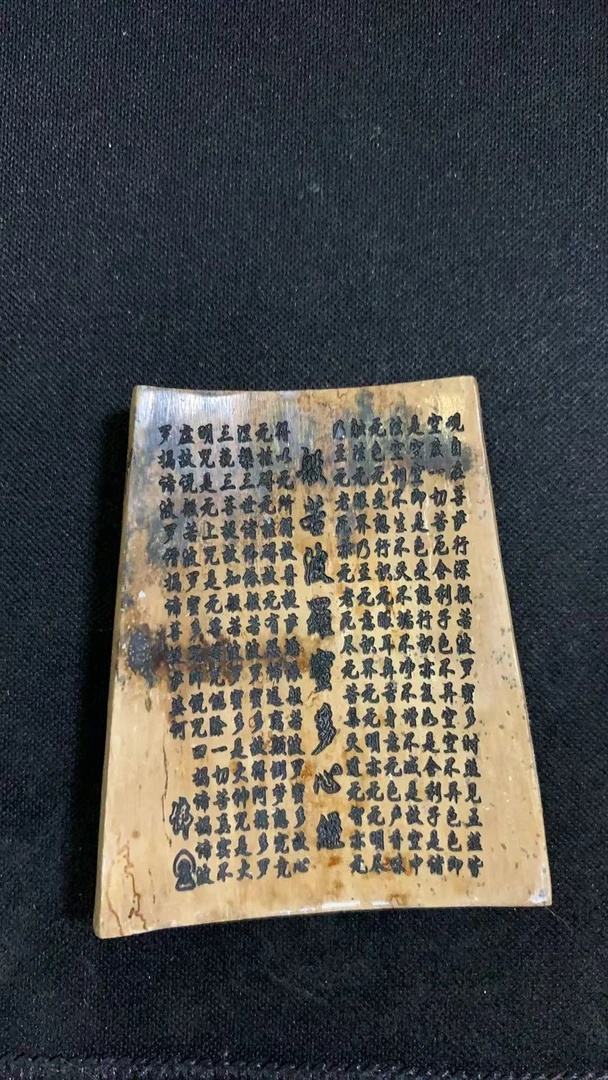 观自在菩萨行深般若波罗蜜多时照见五蕴皆
空度一切苦厄舍利子色不异空空不异色色即
是空空即是色受想行识亦复如是舍利子是诸
法空相不生不灭不垢不净不增不减是故空中
无色无受想行识无眼耳鼻舌身意无色声香味
触法无眼界乃至无意识界无无明亦无无明尽
乃至无老死亦无老死尽无苦集灭道无智亦无
般若波羅蜜多心經
得以无所得故菩提萨埵依般若波罗蜜多故心
无挂碍无挂碍故无有恐怖远离颠倒梦想究竟
涅槃三世诸佛依般若波罗蜜多故得阿耨多罗
三藐三菩提故知般若波罗蜜多是大神咒是大
明咒是无上咒是无等等咒能除一切苦真实不
虚故说般若波罗蜜多咒即说咒曰揭谛揭谛波
罗揭谛波罗僧揭谛菩提萨婆诃
佛